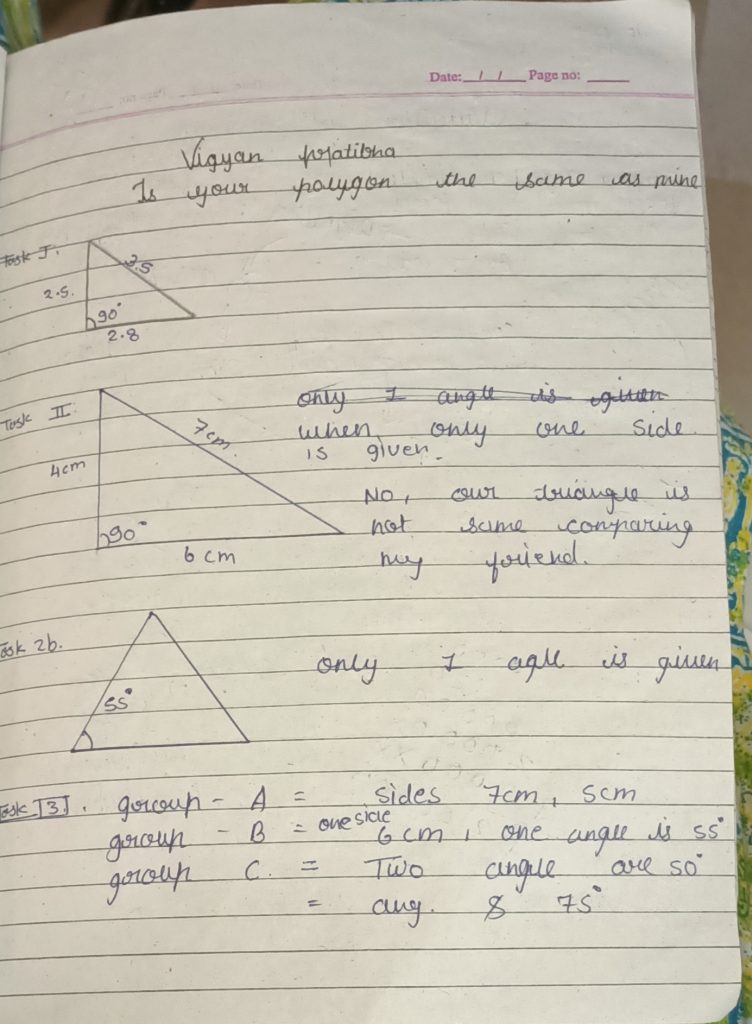 Date: / / Page no:
Vigyan pratibha
Is your polygon the same as mine
Task I.
2.5.
3.5
90°
2.8
Task II.
4cm
7cm.
90°
6 cm
only 1 angle is given
when only one side
is given.
No, our triangle is
not same comparing
my friend.
Task 2b.
55°
only 1 agle is given
Task [3]. group - A = sides 7cm, 5cm
group - B = one side 6cm, one angle is 55°
group C. = Two angle are 50°
= ang. & 75°